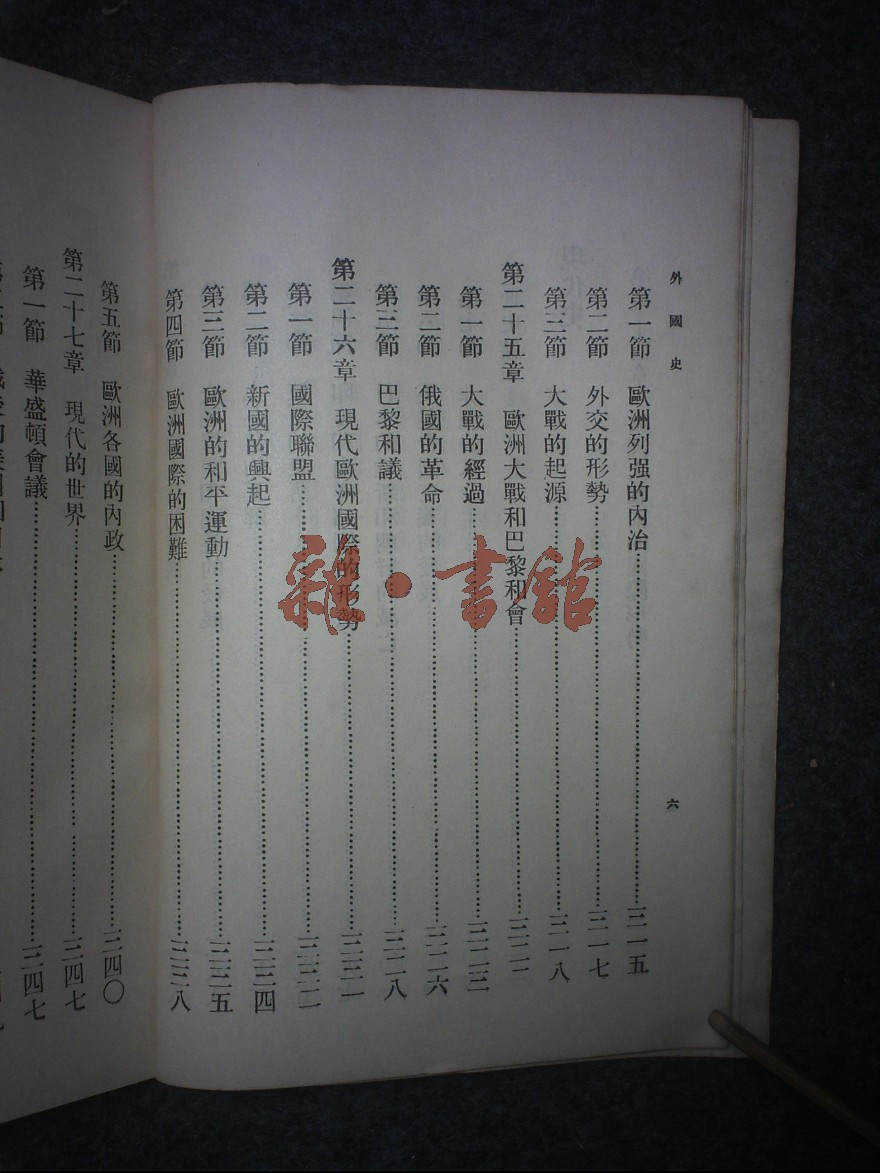 外國史
六
第一節 歐洲列强的內治……………三一五
第二節 外交的形勢……………三一七
第三節 大戰的起源……………三一八
第二十五章 歐洲大戰和巴黎和會……………三二二
第一節 大戰的經過……………三二三
第二節 俄國的革命……………三二六
第三節 巴黎和議……………三二八
第二十六章 現代歐洲國際的形勢……………三三一
第一節 國際聯盟……………三三二
第二節 新國的興起……………三三四
第三節 歐洲的和平運動……………三三五
第四節 歐洲國際的困難……………三三八
第五節 歐洲各國的內政……………三四〇
第二十七章 現代的世界……………三四七
第一節 華盛頓會議……………三四七
雜·書館